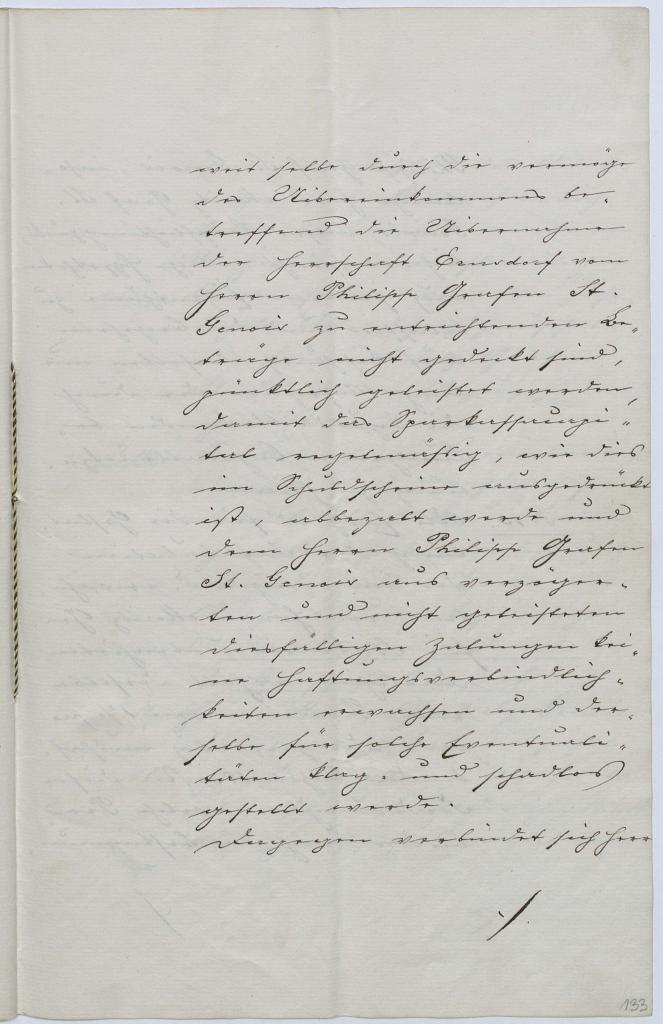 weit selbe durch die vermöge
des Uibereinkommens be-
treffend die Uibernahme
der Herrschaft Ernsdorf vom
Herrn Philipp Grafen St.
Genois zu entrichtenden Be-
träge nicht gedeckt sind,
pünktlich geleistet werden,
damit das Sparkassacapi-
tal regelmässig, wie dies
im Schuldscheine ausgedrückt
ist, abbezalt werde und
dem Herrn Philipp Grafen
St. Genois aus verzöger-
ten und nicht geleisteten
diesfälligen Zalungen kei-
ne Haftungsverbindlich-
keiten erwachsen und der-
selbe für solche Eventuali-
täten klag- und schadlos
gestellt werde.
Dagegen verbindet sich Herr
./.
133